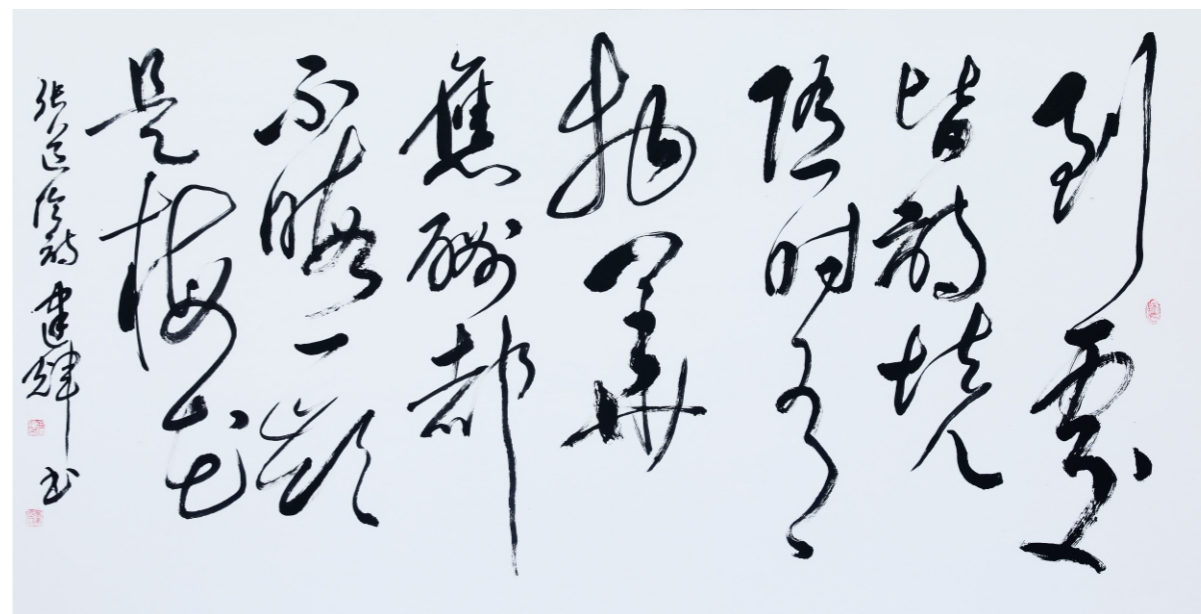 到處
皆詩境
隨時有
物華
應酬都
不暇一嶺
是梅花
張道洽詩 建輝书